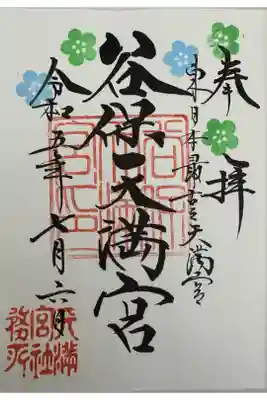 奉拝
東日本最古天満宮
谷保天満宮
令和五年七月六日
天満
宮社
務所